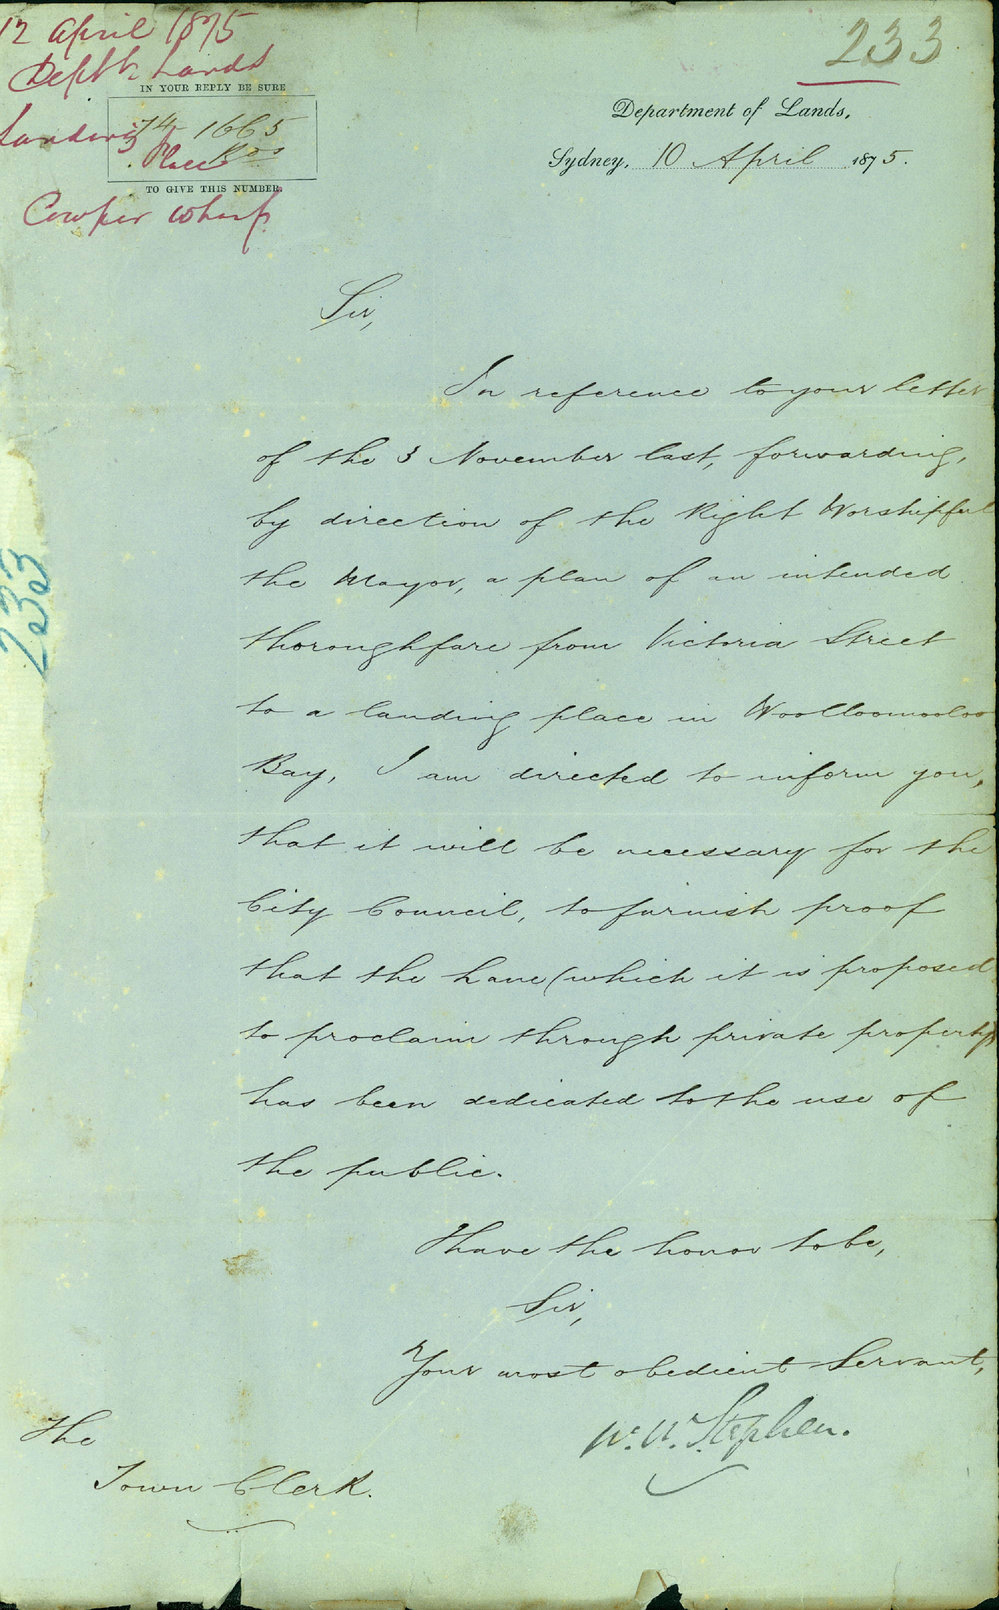 12 April 1875
Dept Lands
Landing
Place
Cowper Wharf
IN YOUR REPLY BE SURE
74 1665
Ros
TO GIVE THIS NUMBER.
233
Department of Lands,
Sydney, 10 April 1875.
Sir,
In reference to your letter
of the 3 November last, forwarding,
by direction of the Right Worshipful
the Mayor, a plan of an intended
thoroughfare from Victoria Street
to a landing place in Woolloomooloo
Bay, I am directed to inform you,
that it will be necessary for the
City Council, to furnish proof
that the Lane (which it is proposed
to proclaim through private property)
has been dedicated to the use of
the public.
I have the honor to be,
Sir,
Your most obedient Servant,
W. W. Stephen.
The
Town Clerk.
233